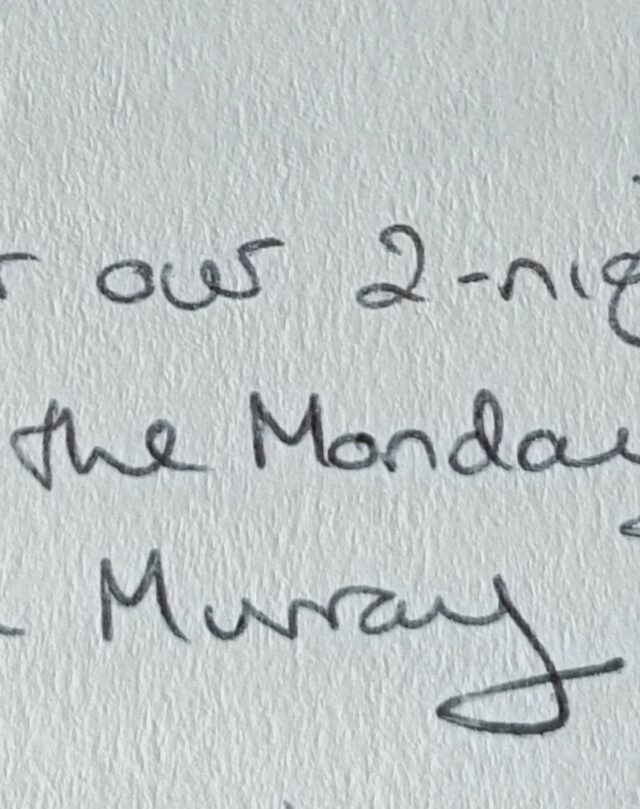 our 2-nig
the Monday
Murray